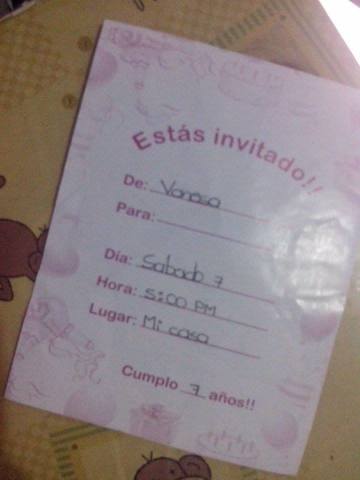 Estás invitado!!
De: Vanesa
Para:
Día: Sabado 7
Hora: 5:00 PM
Lugar: Mi casa
Cumplo 7 años!!